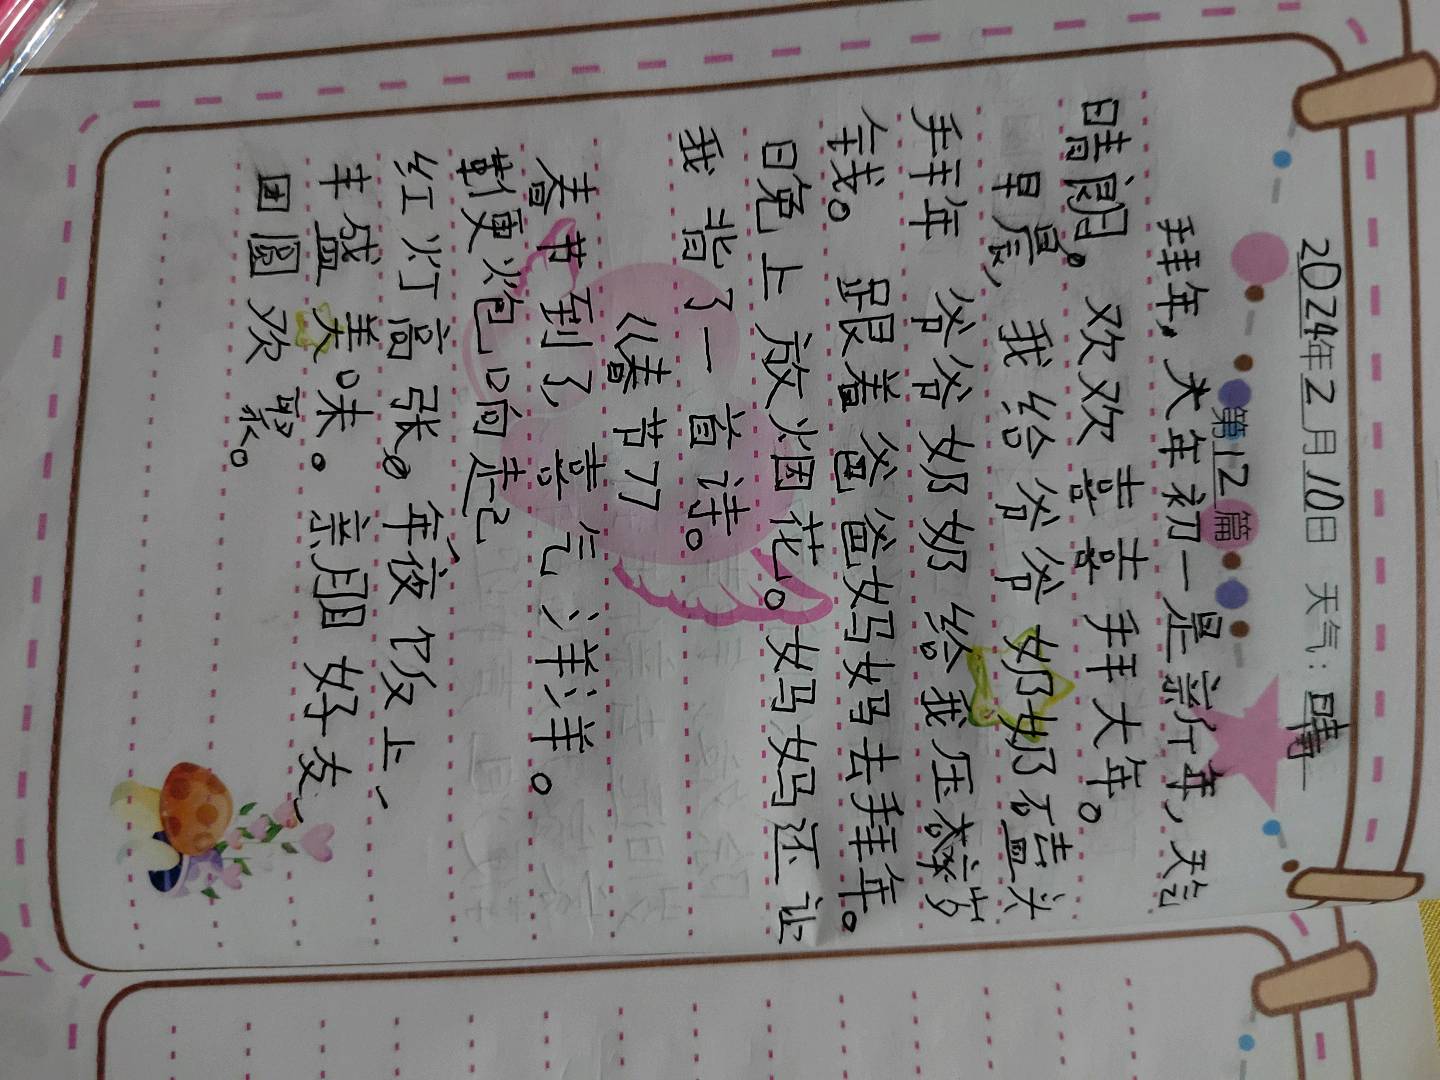 2024年2月10日 天气：晴
第12篇
拜年，大年初一是新年，天气
晴朗。欢欢喜喜拜大年。
早晨，我给爷爷奶奶磕头
拜年 爷爷奶奶给我压岁
钱。 跟着爸爸妈妈去拜年。
晚上放烟花。妈妈还让
我背了一首诗。
《春节》
春节到了喜气洋洋。
鞭炮响起
红灯高张。年夜饭上、
丰盛美味。亲朋好友、
团圆欢聚。